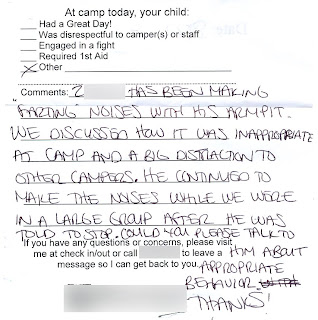 At camp today, your child:
Had a Great Day!
Was disrespectful to camper(s) or staff
Engaged in a fight
Required 1st Aid
X Other
Comments: HAS BEEN MAKING
FARTING NOISES WITH HIS ARMPIT.
WE DISCUSSED HOW IT WAS INAPPROPRIATE
AT CAMP AND A BIG DISTRACTION TO
OTHER CAMPERS. HE CONTINUED TO
MAKE THE NOISES WHILE WE WERE
IN A LARGE GROUP AFTER HE WAS
TOLD TO STOP. COULD YOU PLEASE TALK TO
HIM ABOUT
APPROPRIATE
BEHAVIOR
THANKS!
If you have any questions or concerns, please visit
me at check in/out or call to leave a
message so I can get back to you.